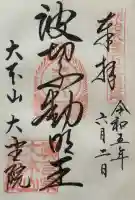 奉拝
令和五年
六月二日
波切不動明王
大本山 大聖院